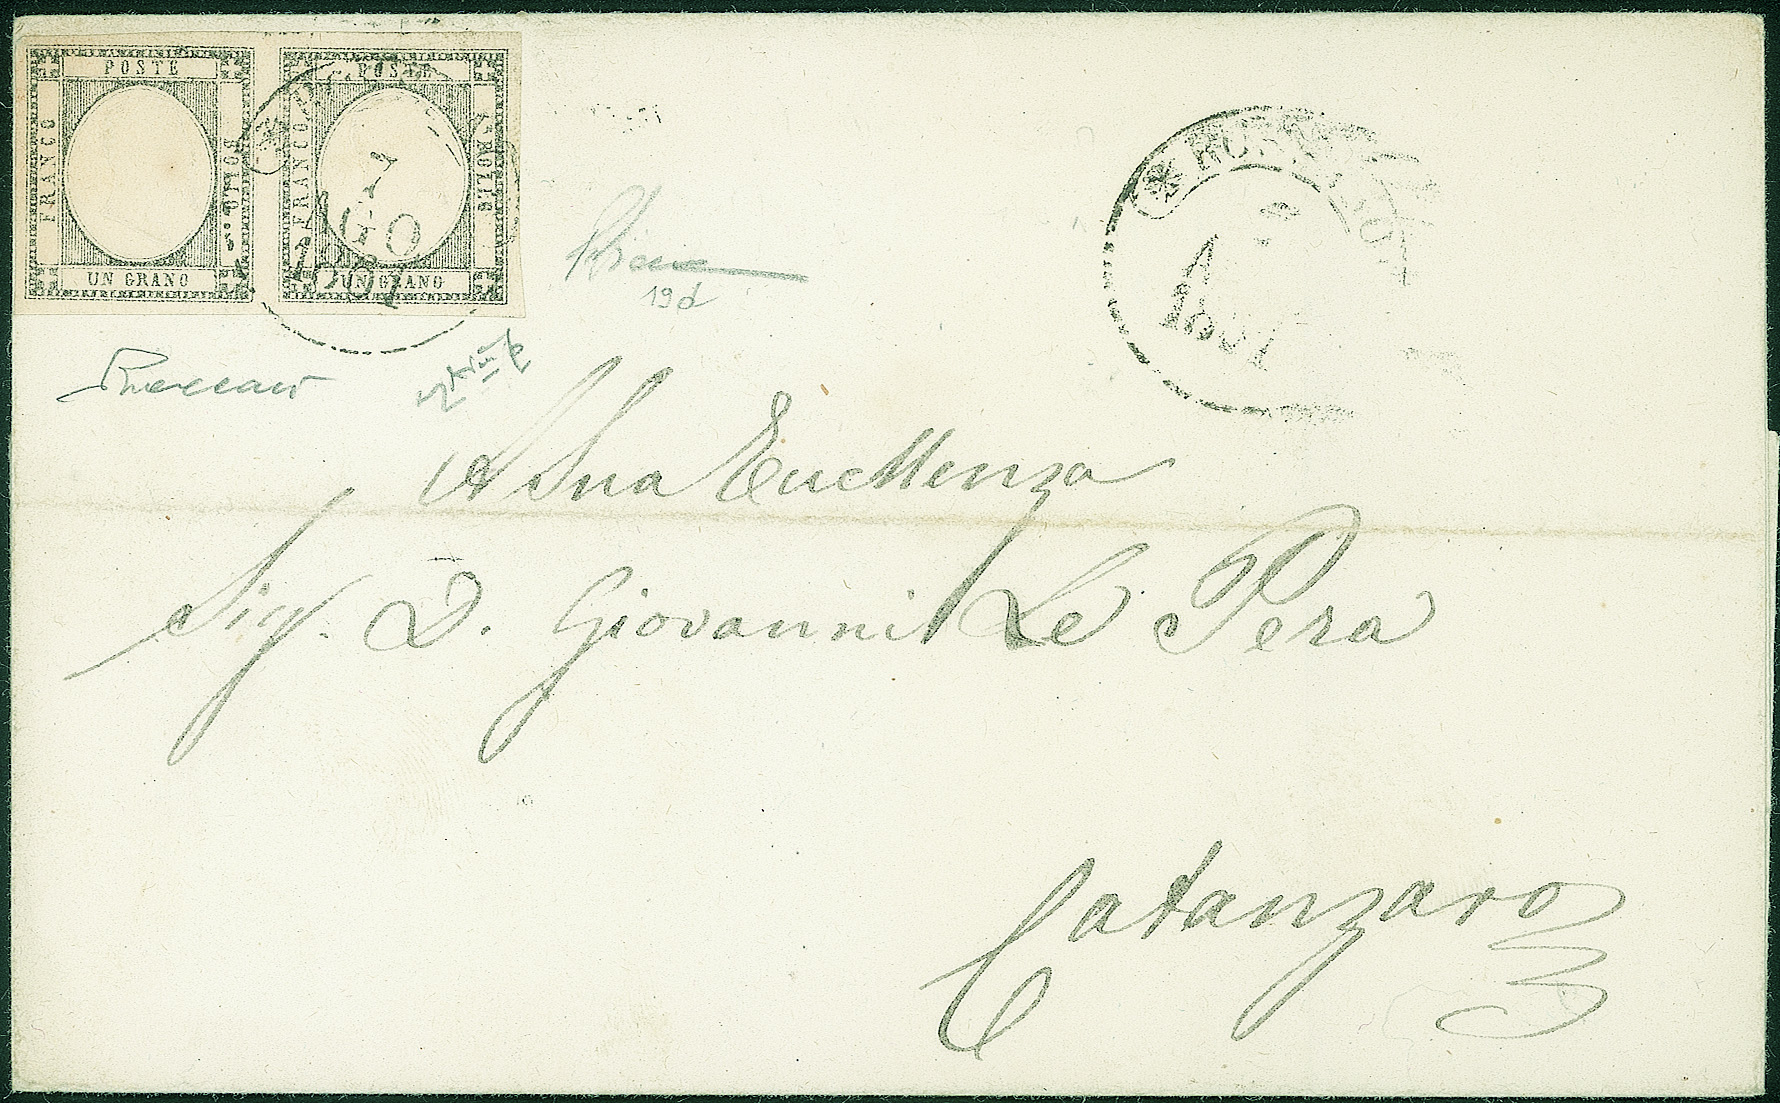 POSTE
FRANCO
BOLLO
UN GRANO
POSTE
FRANCO
BOLLO
UN GRANO
7
AGO
1861
19d
1861
A Sua Eccellenza
Sig. D. Giovanni Le Pera
Catanzaro